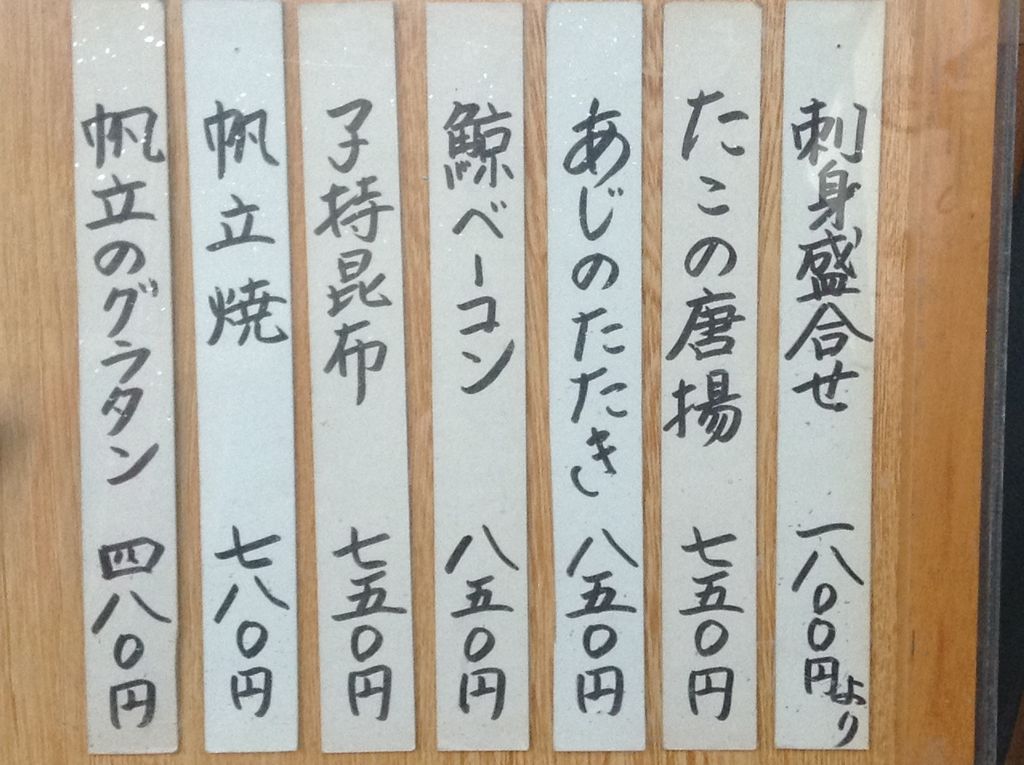 刺身盛合せ 一八〇〇円より
たこの唐揚 七五〇円
あじのたたき 八五〇円
鯨ベーコン 八五〇円
子持昆布 七五〇円
帆立焼 七八〇円
帆立のグラタン 四八〇円